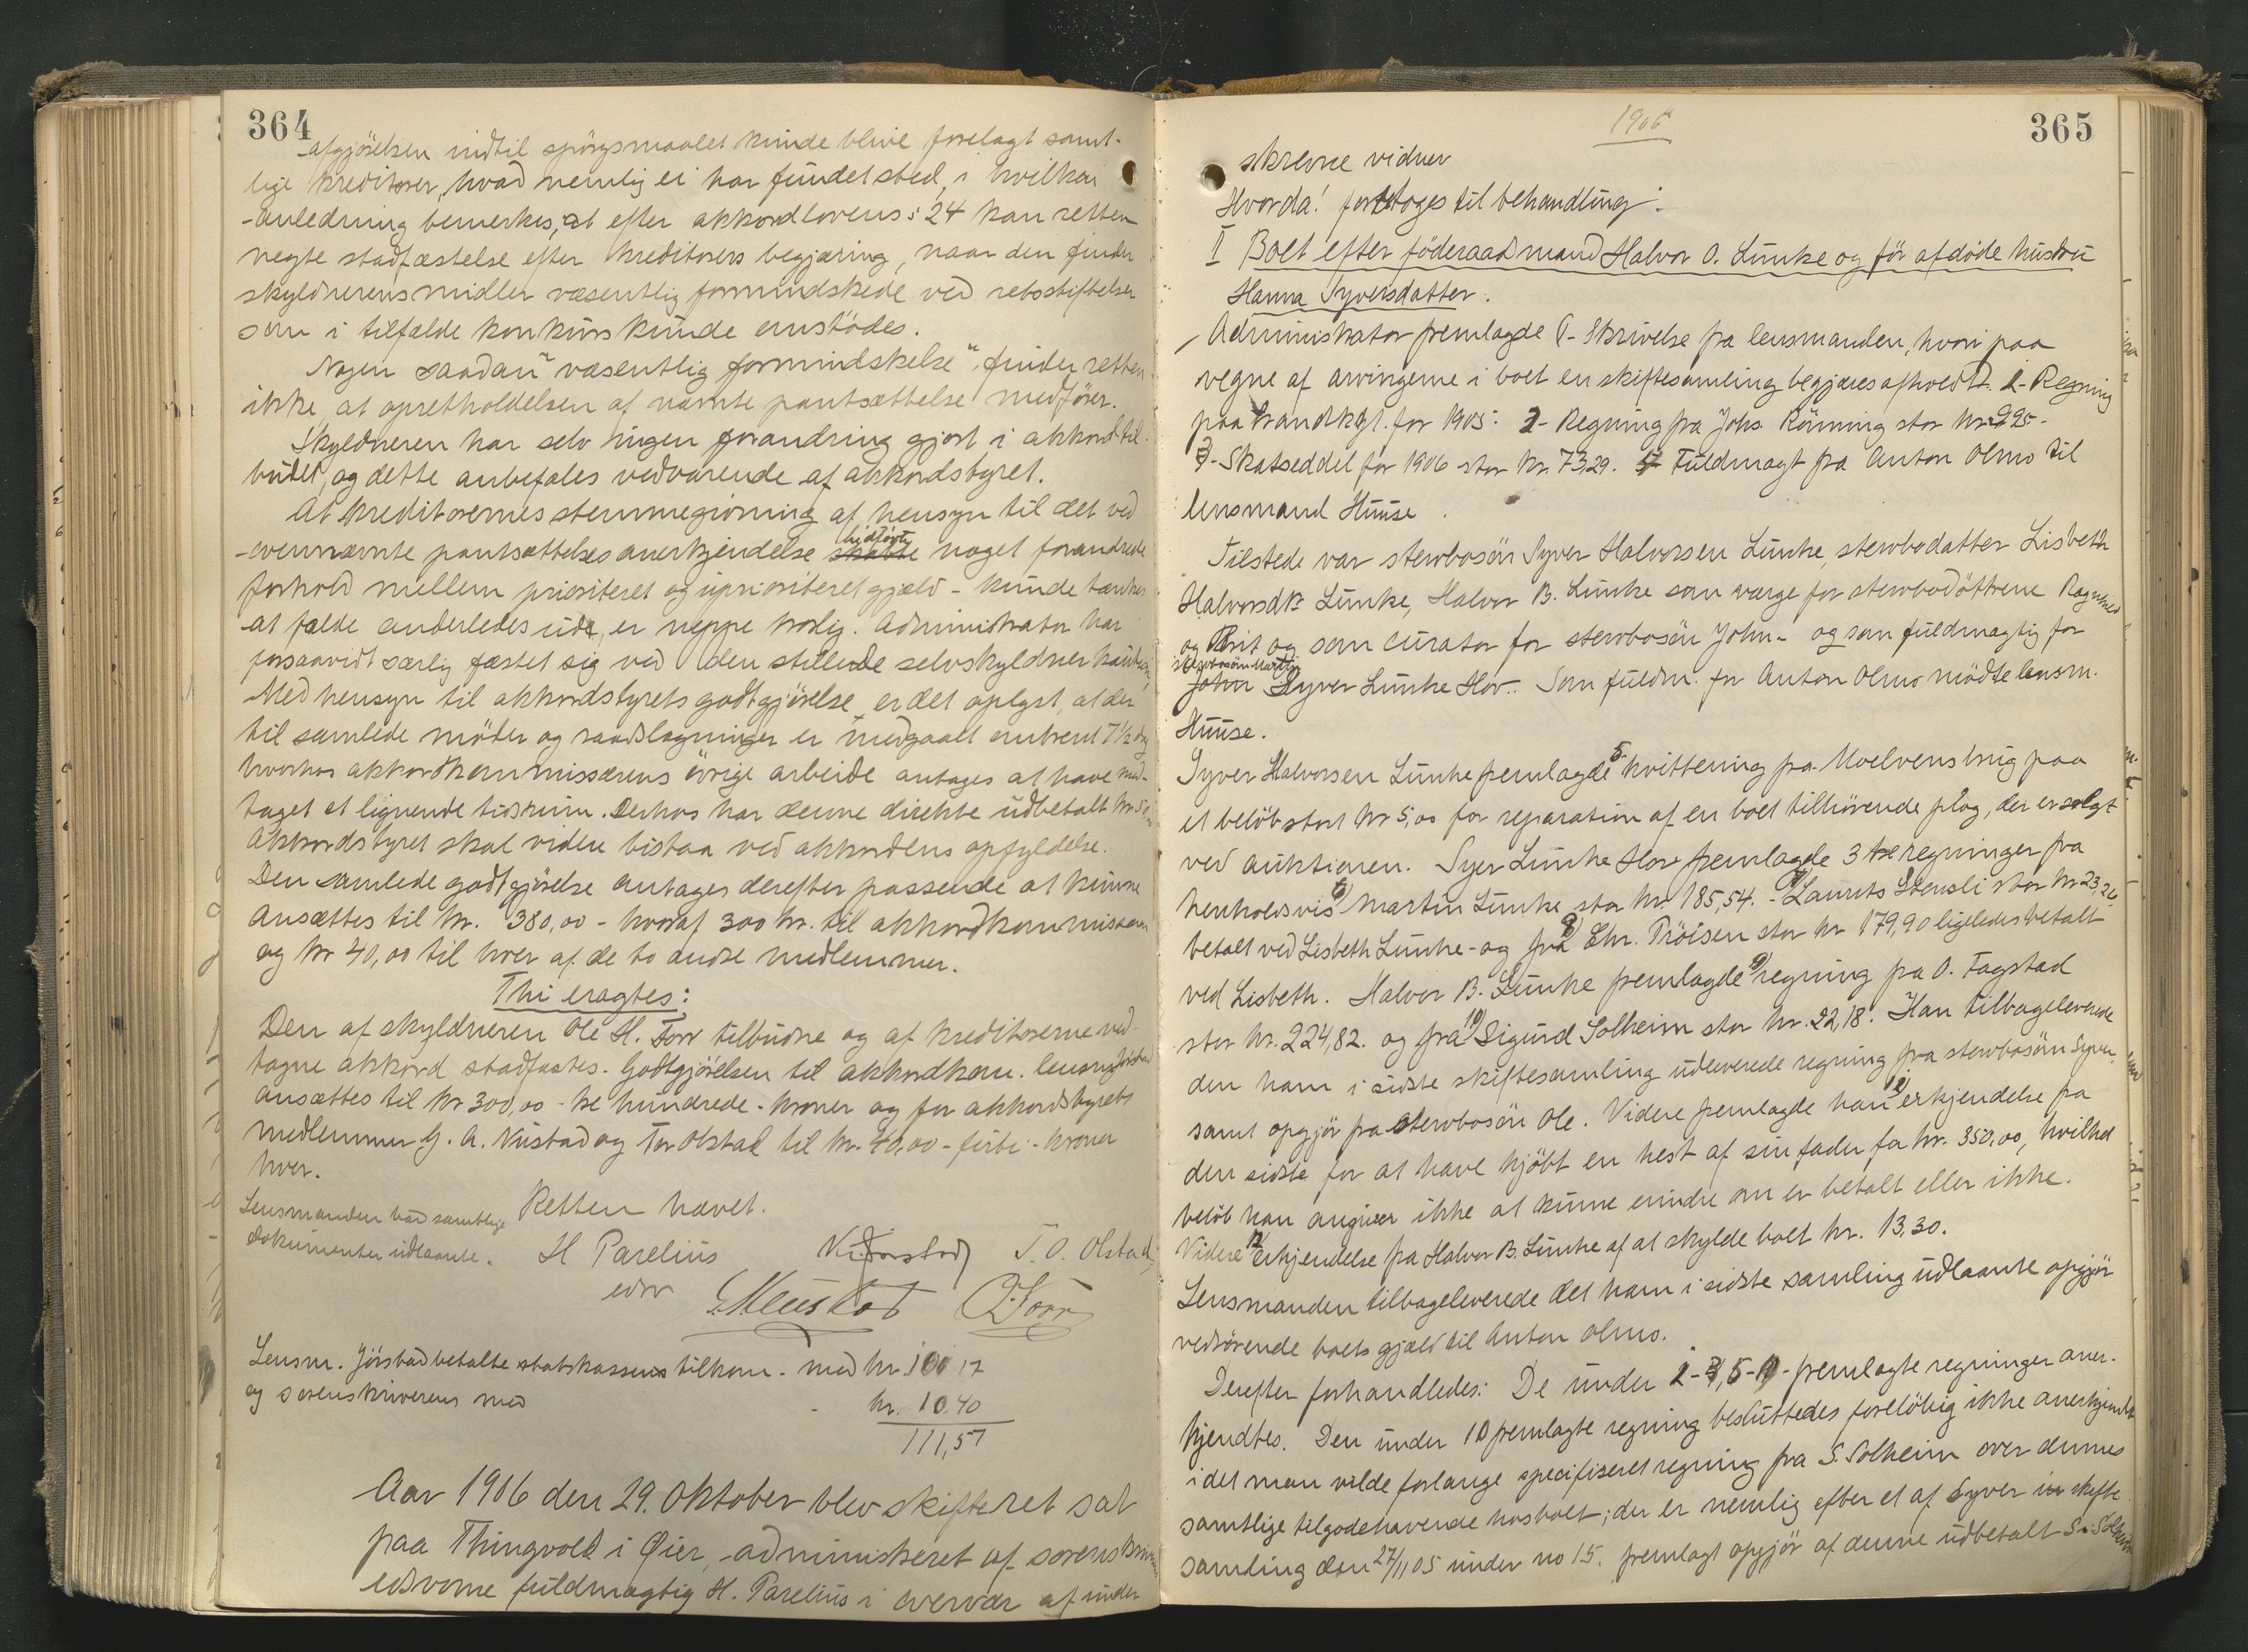 364
afgjörelsen indtil spörgsmaalet kunde blive forelagt samt-
lige kreditorer, hvad nemlig ei har fundet sted, i hvilken
anledning bemerkes, at efter akkordlovens § 24 kan retten
negte stadfæstelse efter kreditorers begjæring, naar den finder
skyldnerens midler væsentlig formindskede ved retsstiftelser
som i tilfælde konkurs kunde omstödes.
Nogen saadan "væsentlig formindskelse" finder retten
ikke at opretholdelsen af nævnte pantsættelse medförer.
Skyldneren har selv ingen forandring gjort i akkordtil-
budet, og dette anbefales vedvarende af akkordstyret.
At kreditorernes stemmegivning af hensyn til det ved
-ovennævnte pantsættelses anerkjendelse skabte hidførte noget forandrede
forhold mellem prioriteret og uprioriteret gjæld - kunde tænkes
at falde anderledes ud, er neppe trolig. Administrator har
forsaavidt særlig fæstet sig ved den stillede selvskyldner kaution
Med hensyn til akkordstyrets godtgjörelse er det oplyst, at der
til samlede möter og raadslagninger er medgaaet omtrent 7½ dag
hvorhos akkordkommissærens övrige arbeide antages at have med-
taget et lignende tidsrum. Derhos har denne direkte udbetalt kr. 5
Akkordstyret skal videre bistaa ved akkordens opfyldelse.
Den samlede godtgjörelse antages derefter passende at kunne
ansættes til kr. 380,00 - hvoraf 300 kr. til akkordkommissæren
og kr 40,00 til hver af de to andre medlemmer.
Thi eragtes:
Den af skyldneren Ole H. Torr tilbudne og af kreditorerne ved-
tagne akkord stadfæstes. Godtgjörelsen til akkordkom. lensm. Jörstad
ansættes til kr 300,00 - tre hundrede - kroner og for akkordstyrets
medlemmer G. A. Nustad og Tor Olstad til kr. 40,00 - firti - kroner
hver.
Retten hævet.
Lensmanden bad samtlige
dokumenter udlaante.
H Parelius
edsv
T. O. Olstad
Lensm. Jörstad betalte statskassens tilkom. med kr. 101 17
og sorenskriverens med - kr. 10.40
111,57
Aar 1906 den 29. oktober blev skifteret sat
paa Thingvold i Øier, administreret af sorenskriverens
edsvorne fuldmægtig H. Parelius i overvær af under
1906
365
skrevne vidner
Hvorda! foretoges til behandling:
I Boet efter föderaadmand Halvor O. Lunke og för afdöde hustru
Hanna Syversdatter.
Administrator fremlagde 1- Skrivelse fra lensmanden, hvori paa
vegne af arvingerne i boet en skiftesamling begjæres afholdt. 2- Regning
paa brandktgt. for 1905: 2- Regning fra Johs. Rönning stor kr. 2,95-
3- Skatseddel for 1906 stor kr. 73,29. Fuldmagt fra Anton Olmo til
lensmand Huuse.
Tilstede var stervbosön Syver Halvorsen Lunke, stervbodatter Lisbeth
Halvorsdtr Lunke, Halvor B. Lunke som værge for stervbodöttrene Ragnhild
og Marit og som curator for stervbosön John - og som fuldmægtig for
stervbosön Martin
John Syver Lunke Hov. Som fuldm. for Anton Olmo mödte lensm.
Huuse.
Syver Halvorsen Lunke fremlagde 5 kvittering fra Moelvens brug paa
et belöb stort kr 5,00 for reparation af en boet tilhörende plog, der er solgt
ved auktionen. Syver Lunke Hov fremlagde 3 regninger fra
henholdsvis 6) Martin Lunke stor kr. 185,54. - 7) Laurits Stensli stor kr 23,26
betalt ved Lisbeth Lunke - og fra 8) Chr. Pröisen stor kr 179,90 ligeledes betalt
ved Lisbeth. Halvor B. Lunke fremlagde 9) regning fra O. Fagstad
stor kr. 224,82. og fra 10) Sigurd Solheim stor kr. 22,18. Han tilbageleverede
den ham i sidste skiftesamling udleverede regning fra stervbosön Syver
samt opgjör fra stervbosön Ole. Videre fremlagde han erkjendelse fra
den sidste for at have kjöbt en hest af sin fader for kr. 350,00, hvilket
belöb han angiver ikke at kunne erindre om er betalt eller ikke.
Videre 12 erkjendelse fra Halvor B. Lunke af at skylde boet kr. 13,30.
Lensmanden tilbageleverede det ham i sidste samling udlaante opgjör
vedrörende boets gjæld til Anton Olmo.
Derefter forhandledes: De under 2-3, 5-9 - fremlagte regninger aner-
kjendtes. Den under 10 fremlagte regning besluttedes forelöbig ikke anerkjendt
idet man vilde forlange specifiseret regning fra S. Solheim over dennes
samtlige tilgodehavende hos boet; der er nemlig efter et af Syver i skifte
samling den 27/11 05 under no 15. fremlagt opgjör af denne udbetalt S. Solheim